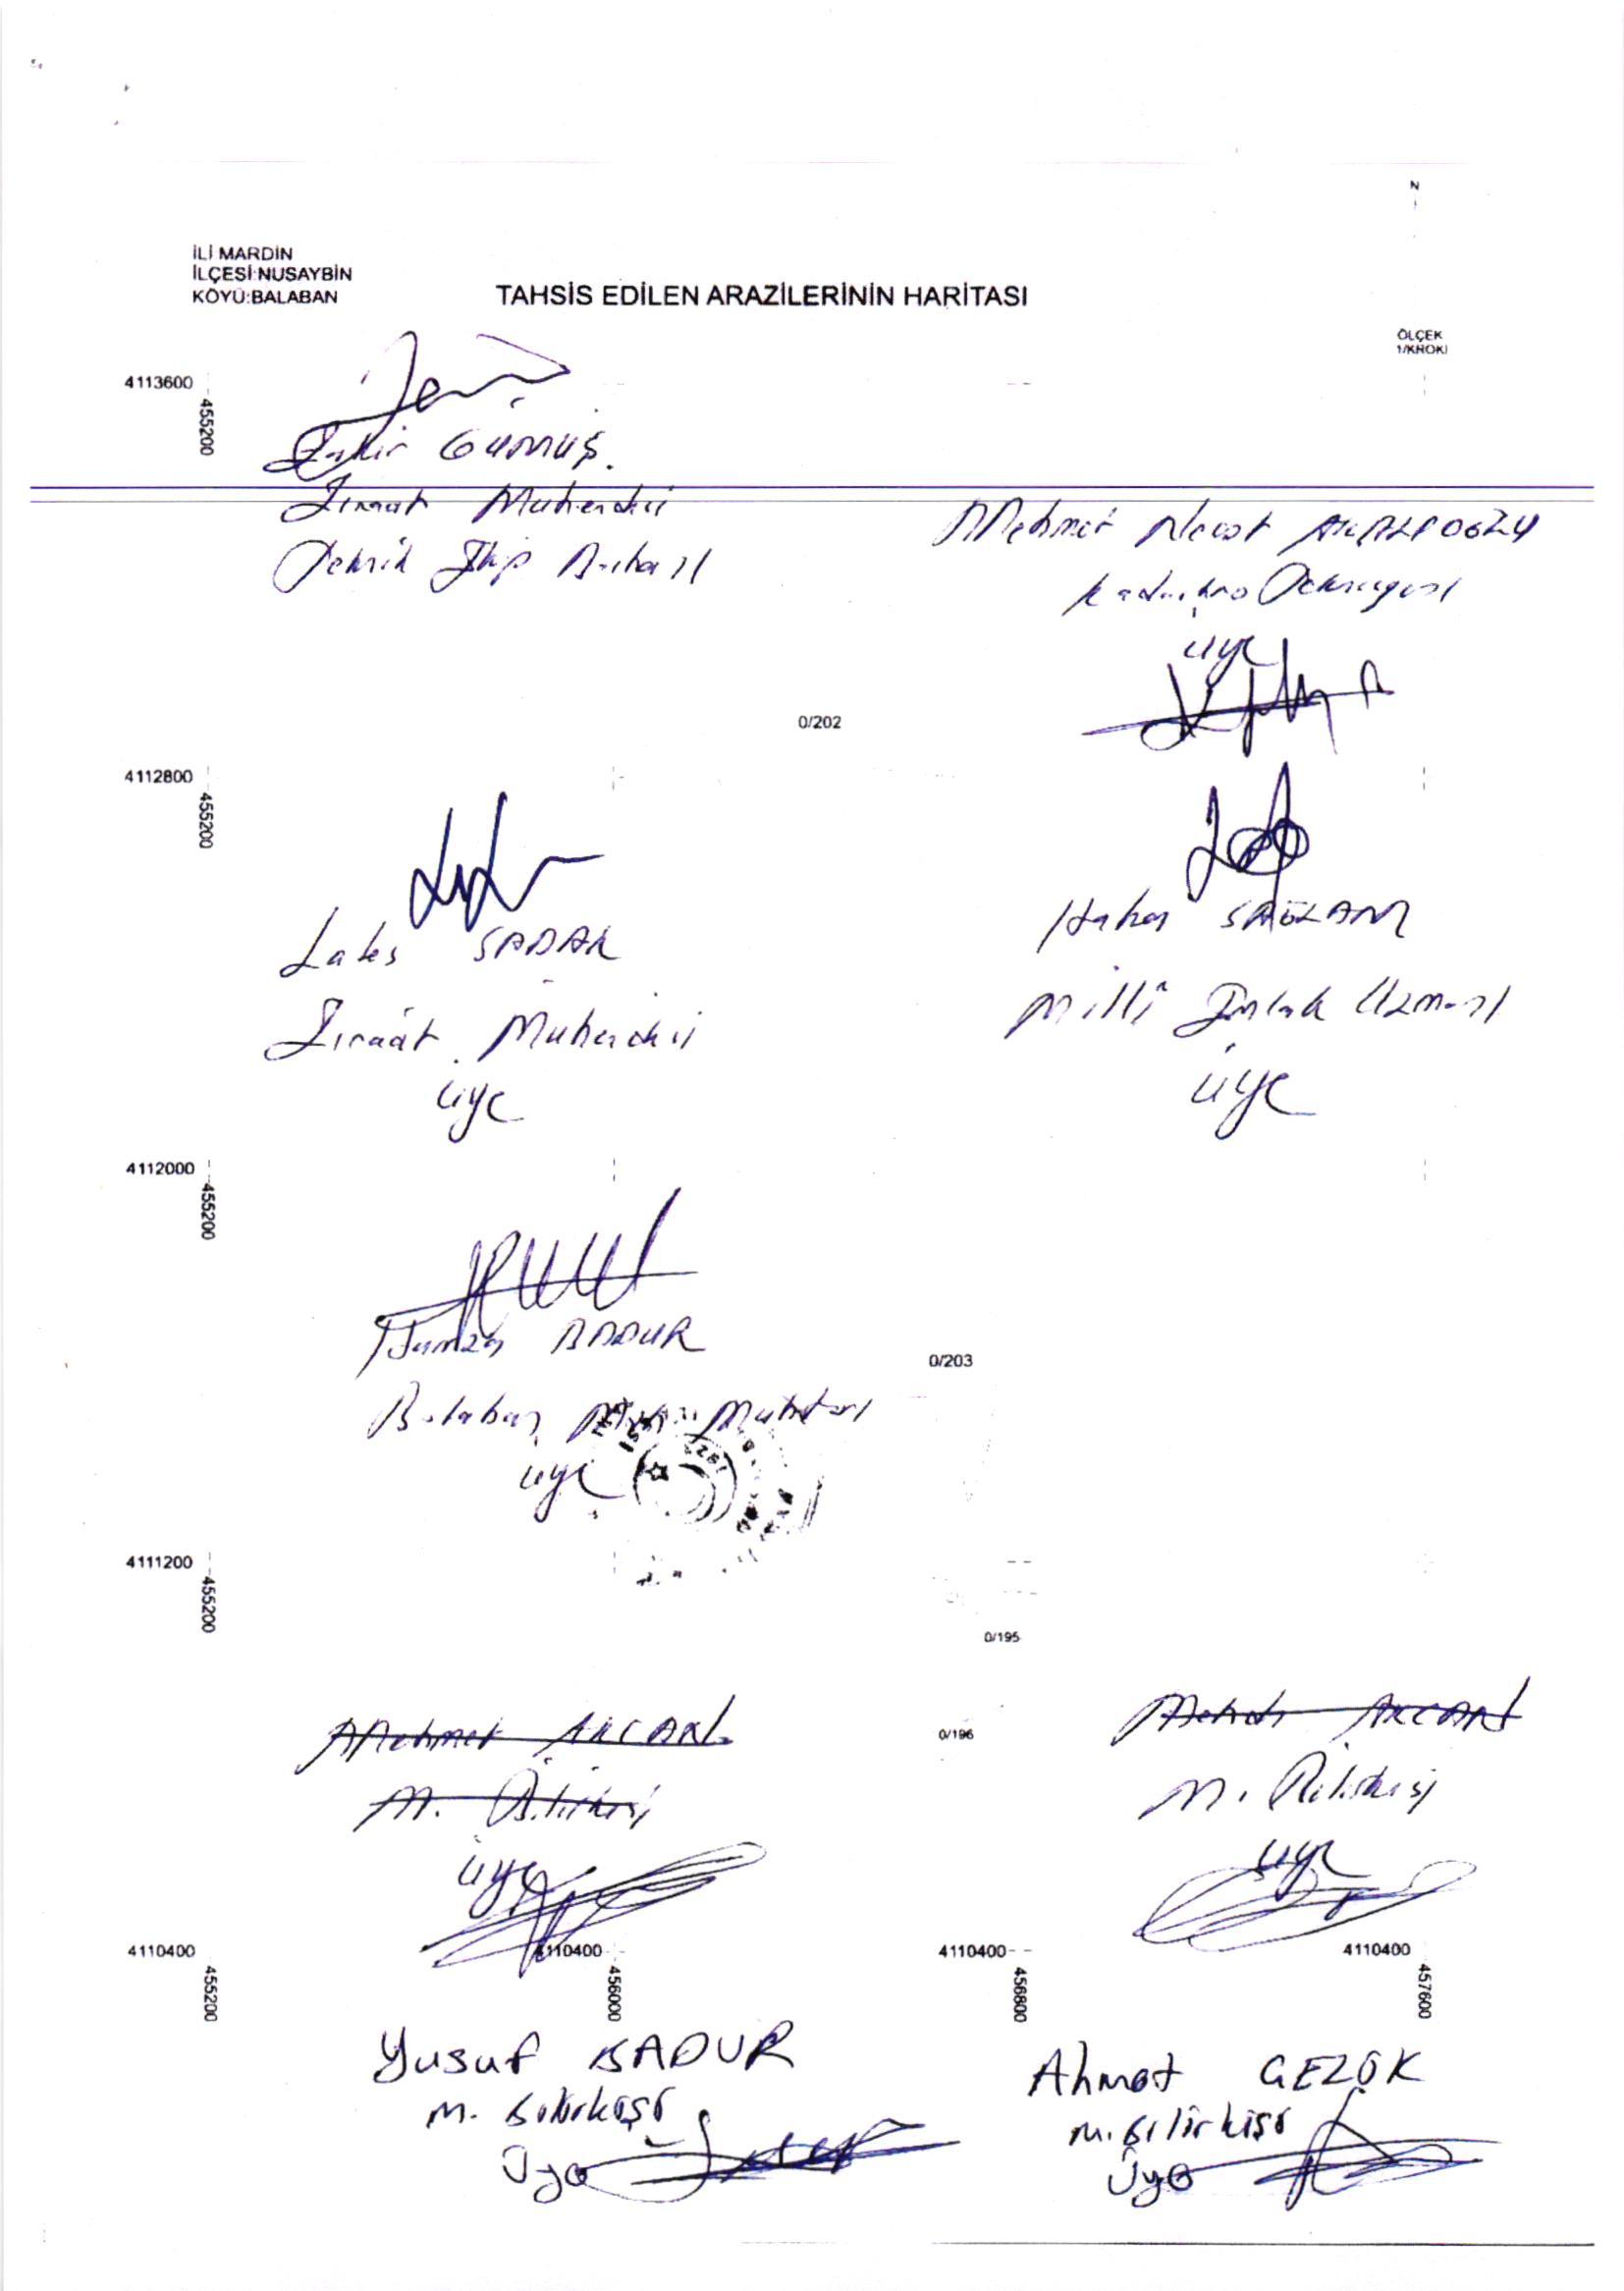 N
İLİ MARDİN
İLÇESİ:NUSAYBİN
KÖYÜ:BALABAN
TAHSİS EDİLEN ARAZİLERİNİN HARİTASI
ÖLÇEK
1/KROKİ
4113600
455200
GÜMÜŞ.
Ziraat Mühendisi
Teknik Ekip
Mehmet
Kadastro
üye
0/202
4112800
455200
SADAK
Ziraat Mühendisi
üye
Hakan SAĞLAM
Milli Emlak Uzmanı
üye
4112000
455200
Hamza BADUR
Balaban Muhtarı
üye
0/203
4111200
455200
0/195
Mehmet AKCAN
M. Bilirkişi
üye
0/196
AKCAN
M. Bilirkişi
üye
4110400
4110400
4110400
4110400
455200
456000
456800
457600
Yusuf BADUR
M. Bilirkişi
Üye
Ahmet GEZÖK
M. Bilirkişi
Üye